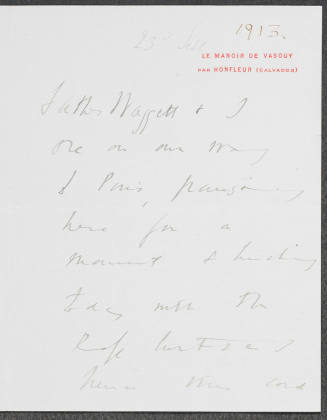 1913.
23rd
LE MANOIR DE VASOUY
PAR HONFLEUR (CALVADOS)
Father Waggett & I
are on our way
to Paris, pausing
here for a
moment & lunching
today with the
hence this card